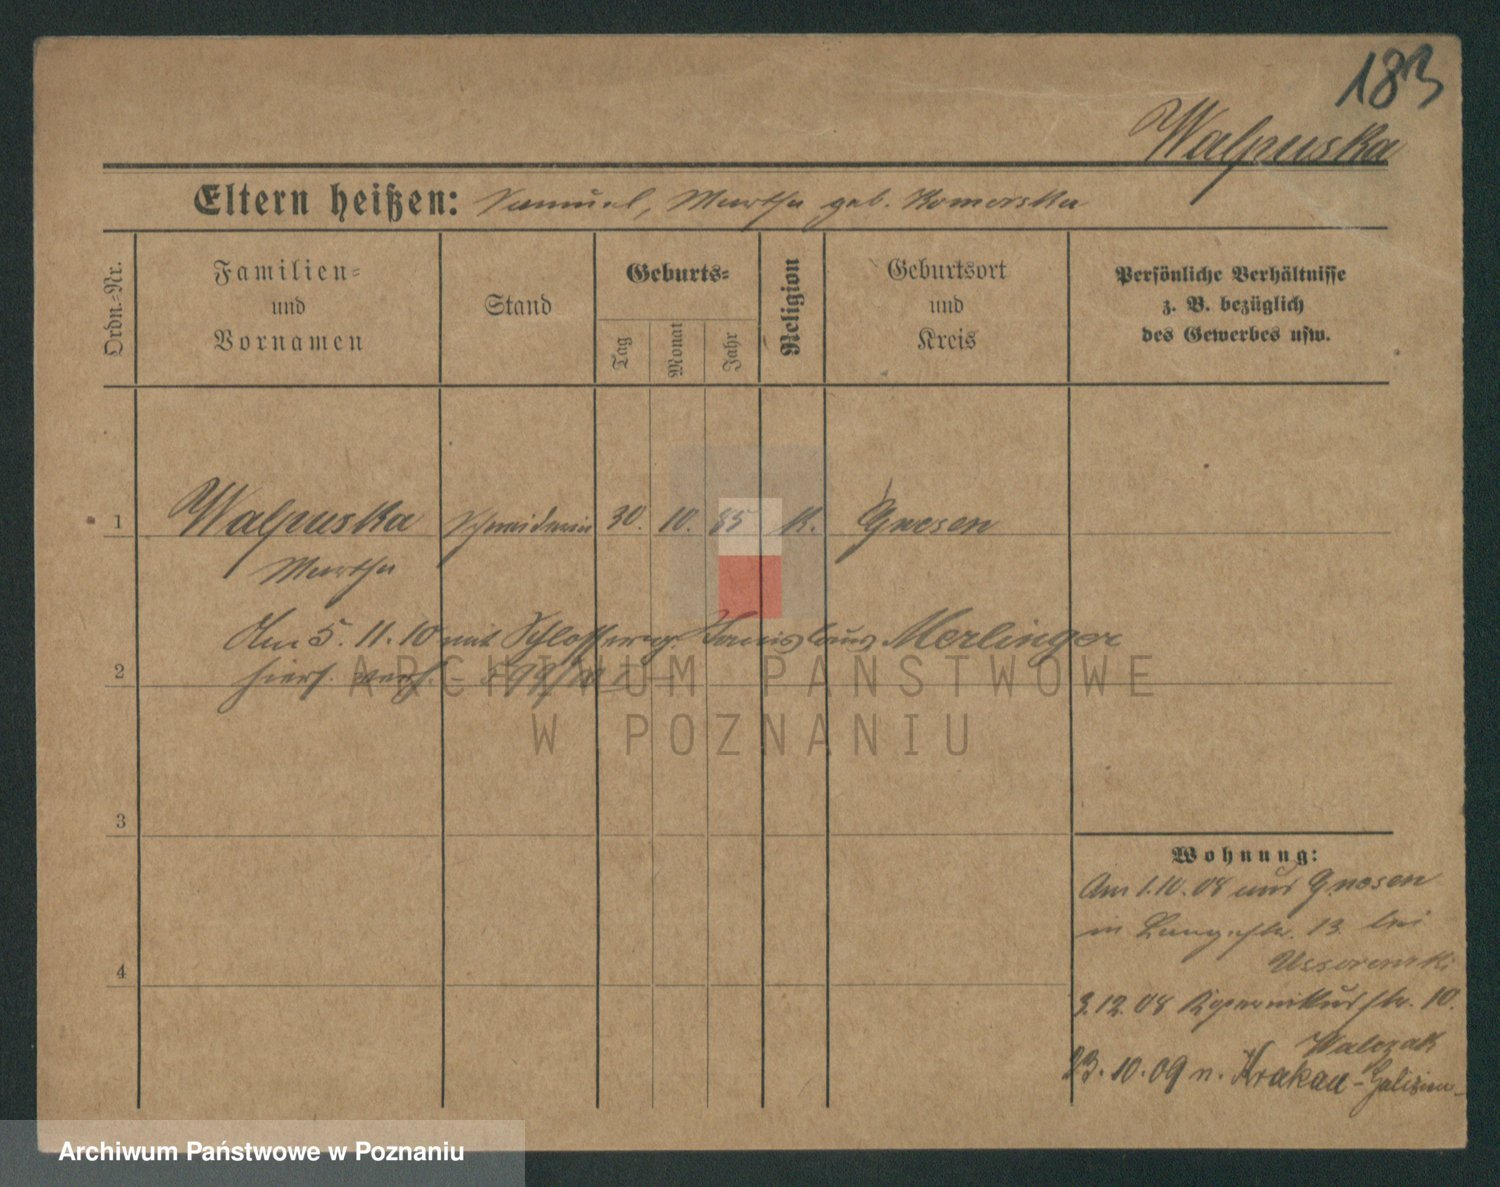 183
Walpuska
Eltern heißen: Samuel, Martha geb. Komorska
Ordn.-Nr.
Familien- und Vornamen
Stand
Geburts-
Tag
Monat
Jahr
Religion
Geburtsort und Kreis
Persönliche Verhältnisse
z. B. bezüglich
des Gewerbes usw.
1 Walpuska Schneiderin 30. 10. 85 K. Gnesen
Martha
Am 5. 11. 10 mit Schlosserg. Stanislaus Merlinger
2 hiers. verh.
3
4
Wohnung:
Am 1.10.08 aus Gnesen
in Langestr. 13 bei
3.12.08 Kopernikusstr. 10.
Walczak
23.10.09 n. Krakau-Galizien
ARCHIWUM PAŃSTWOWE
W POZNANIU
Archiwum Państwowe w Poznaniu